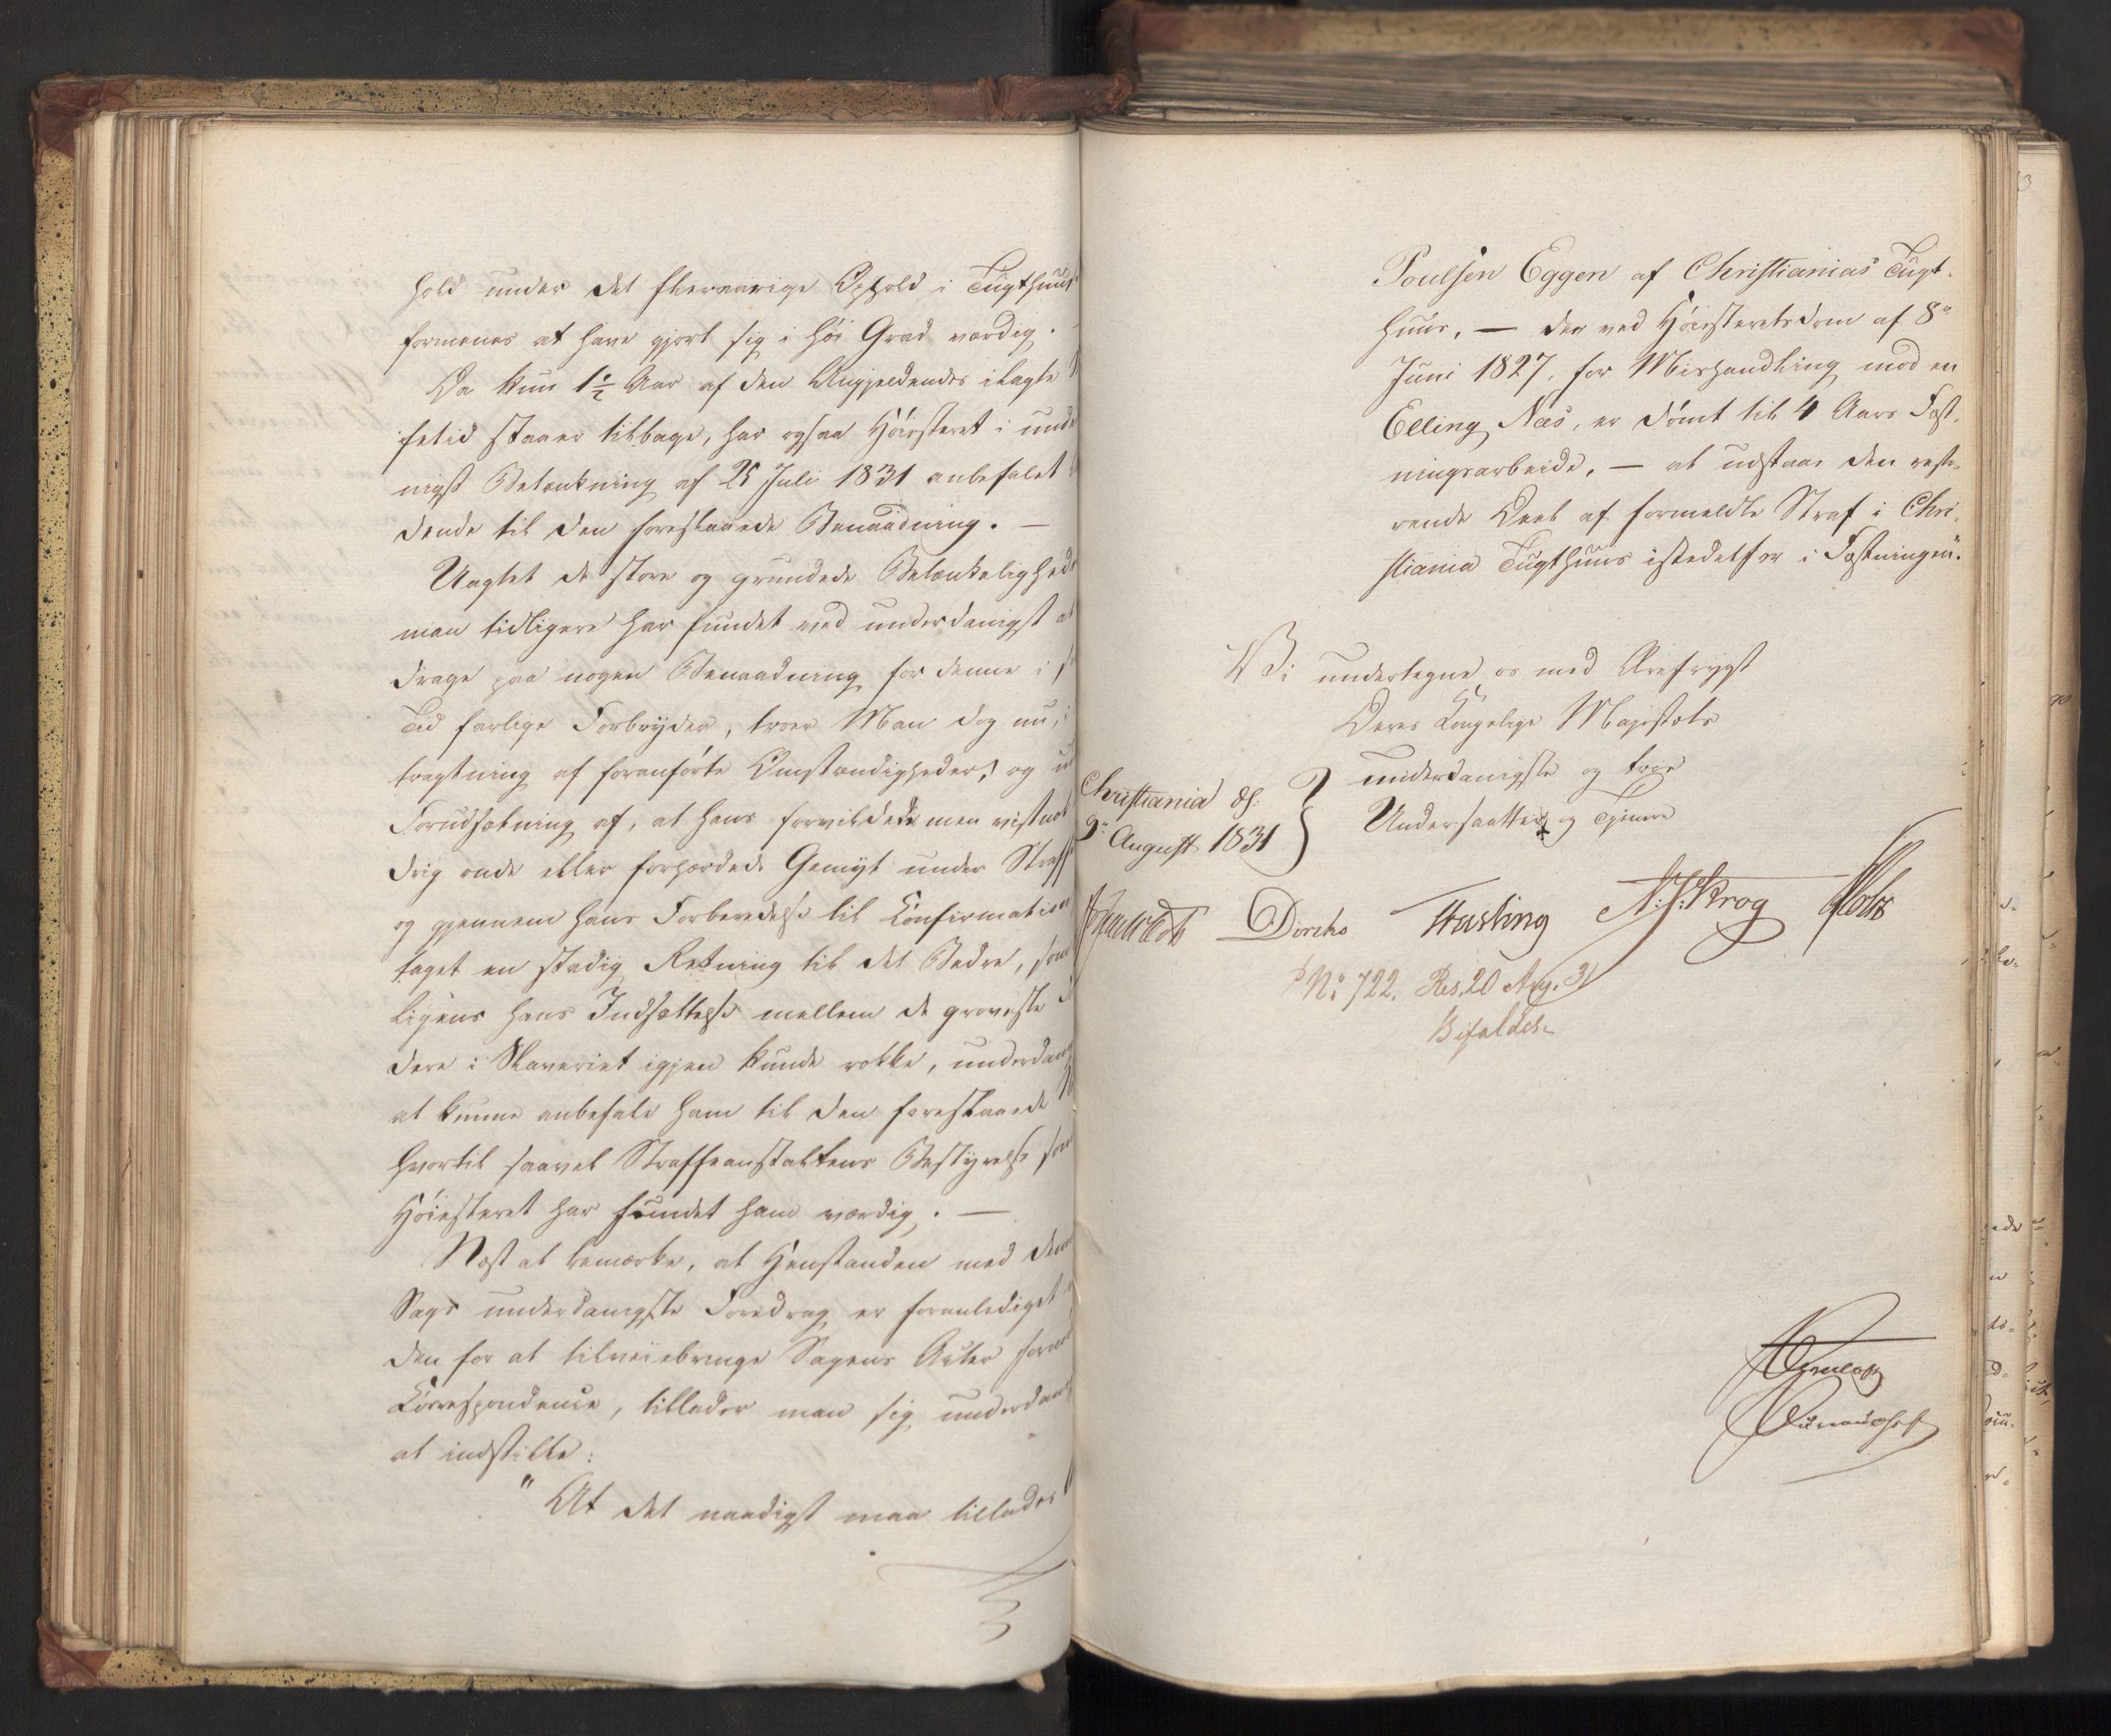 hold under det fleeraarige Ophold i Tugthuus
formenes at have gjort sig i høi Grad værdig. –
Da kun 1½ Aar af den Angjeldendes ilagte
fetid staaer tilbage, har ogsaa Høiesteret i unde
nigst Betænkning af 25 Juli 1831 anbefalet
dende til den foreslaaede Benaadning. —
Uagtet de store og grundede Betænkelighede
man tidligere har fundet ved underdanigst at
drage paa nogen Benaadning for denne i s
Tid farlige Forbryder, troer Man dog nu, i
tragtning af foranførte Omstændigheder, og u
Forudsætning af, at hans forvildede men vistnok
drig onde eller forhærdede Gemyt under Straffe
og gjennem hans Forberedelse til Confirmation
taget en stadig Retning til det Bedre, som
ligens hans Indsættelse mellem de groveste
dere i Slaveriet igjen kunde rokke, underdan
at kunne anbefale ham til den foreslaaede
hvortil saavel Straffeanstaltens Bestyrelse som
Høiesteret har fundet ham værdig. —
Næst at bemærke, at Henstanden med denne
Sags underdanigste Foredrag er foranlediget
den for at tilveiebringe Sagens Acter fornø
Correspondence, tillader man sig underdan
at indstille:
"At det naadigst maa tillades
Poulsen Eggen af Christianias Tugt-
huus, — der ved Høiesteretsdom af 8de
Juni 1827, for Mishandling mod en
Elling Næs, er dømt til 4 Aars Fæst-
ningsarbeide, — at udstaae den reste-
rende Deel af formeldte Straf i Chri-
stiania Tugthuus istedetfor i Fæstningen".
Vi undertegne os med Ærefrygt
Deres Kongelige Majestæts
underdanigste og troe
Undersaatter og Tjenere
Christiania d.
9de August 1831
Diriks Fasting N.J. Krog Holst
No 722. Res. 20 Aug. 31
Bifaldes